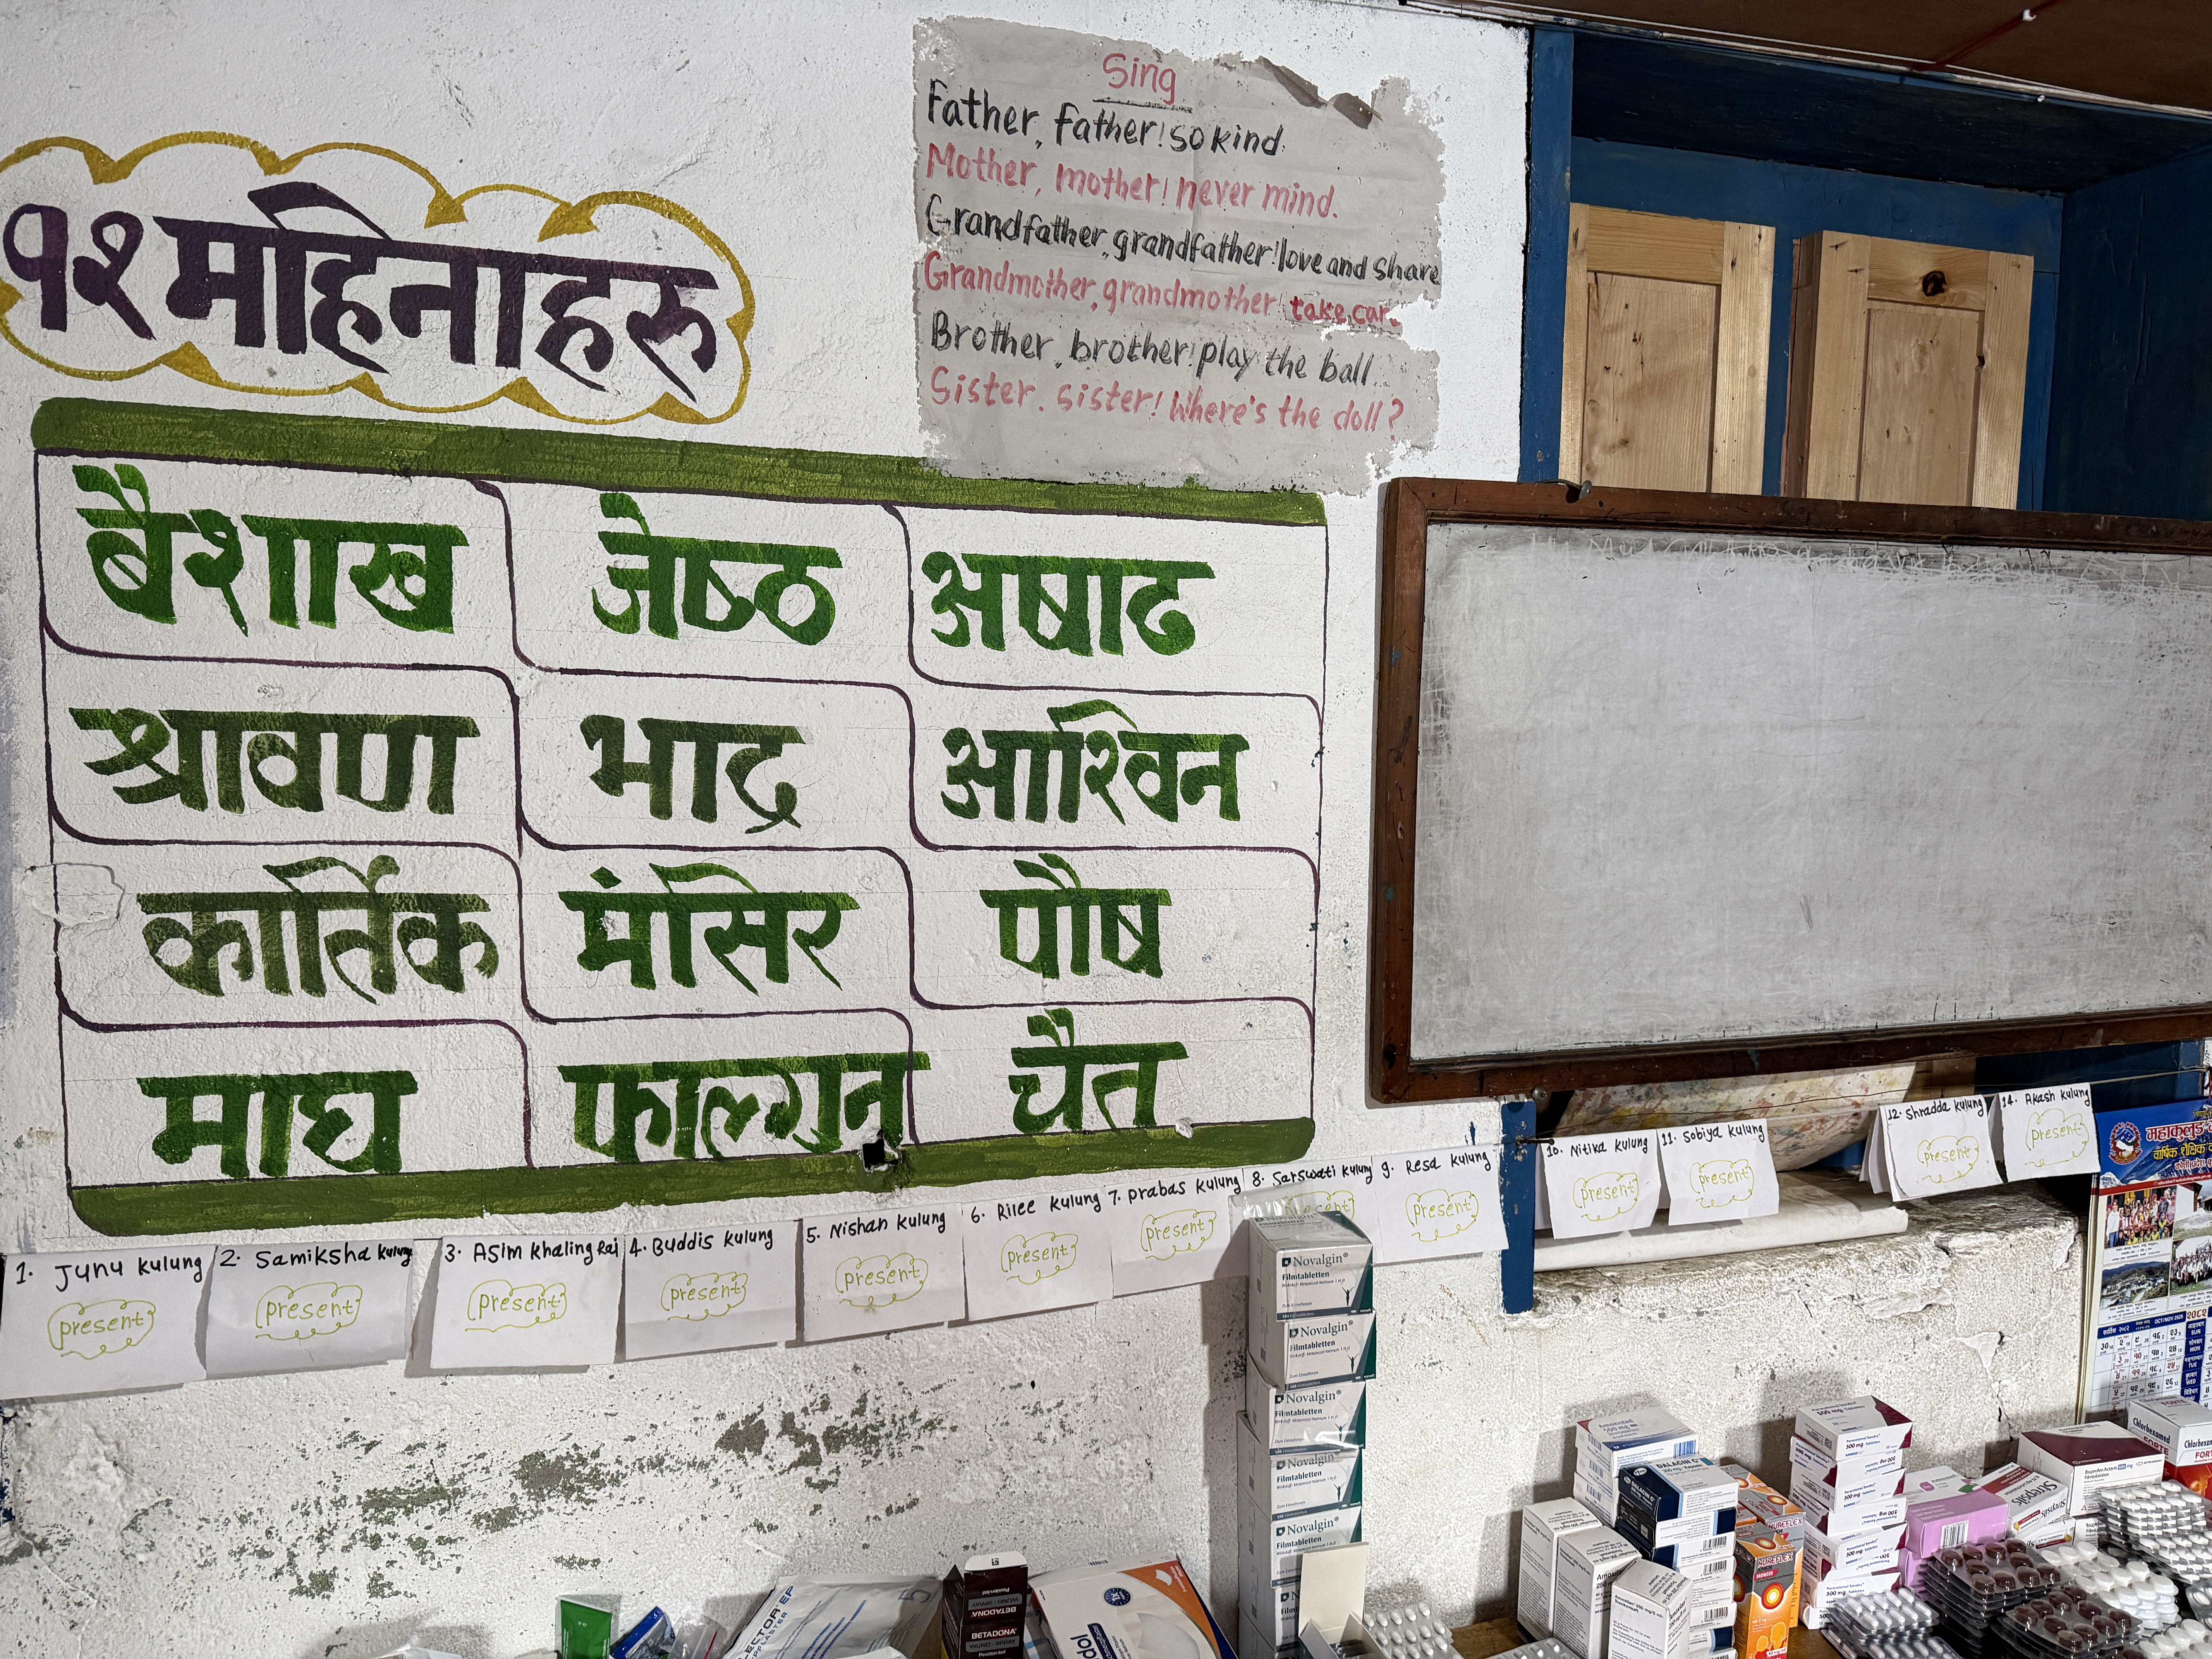 १२ महिनाहरु
बैशाख
जेष्ठ
अषाढ
श्रावण
भाद्र
आश्विन
कार्तिक
मंसिर
पौष
माघ
फाल्गुन
चैत
Sing
Father, father! so kind.
Mother, mother! never mind.
Grandfather, grandfather! love and share
Grandmother, grandmother! take car
Brother, brother! play the ball
Sister, sister! Where's the doll?
1. Junu kulung
present
2. Samiksha kulung
present
3. Asim khaling Rai
present
4. Buddis kulung
present
5. Nishan kulung
present
6. Rilee kulung
present
7. prabas kulung
present
8. Sarswati kulung
present
9. Resa kulung
present
10. Nitika kulung
present
11. Sobiya kulung
present
12. Shradda kulung
present
14. Akash kulung
present
महाकुलुङ
वार्षिक शैक्षिक
OCT/NOV 2025
Novalgin®
Filmtabletten
Novalgin®
Filmtabletten
Novalgin®
Filmtabletten
Novalgin®
Filmtabletten
Novalgin®
Filmtabletten
BETADONA®
WUND-SPRAY
BETADONA®
WUND-SPRAY
DALACIN C
NUREFLEX
NUREFLEX
500 mg
500 mg
500 mg
Strepsils
Filmtabletten
Chlorhexamed
FORTE